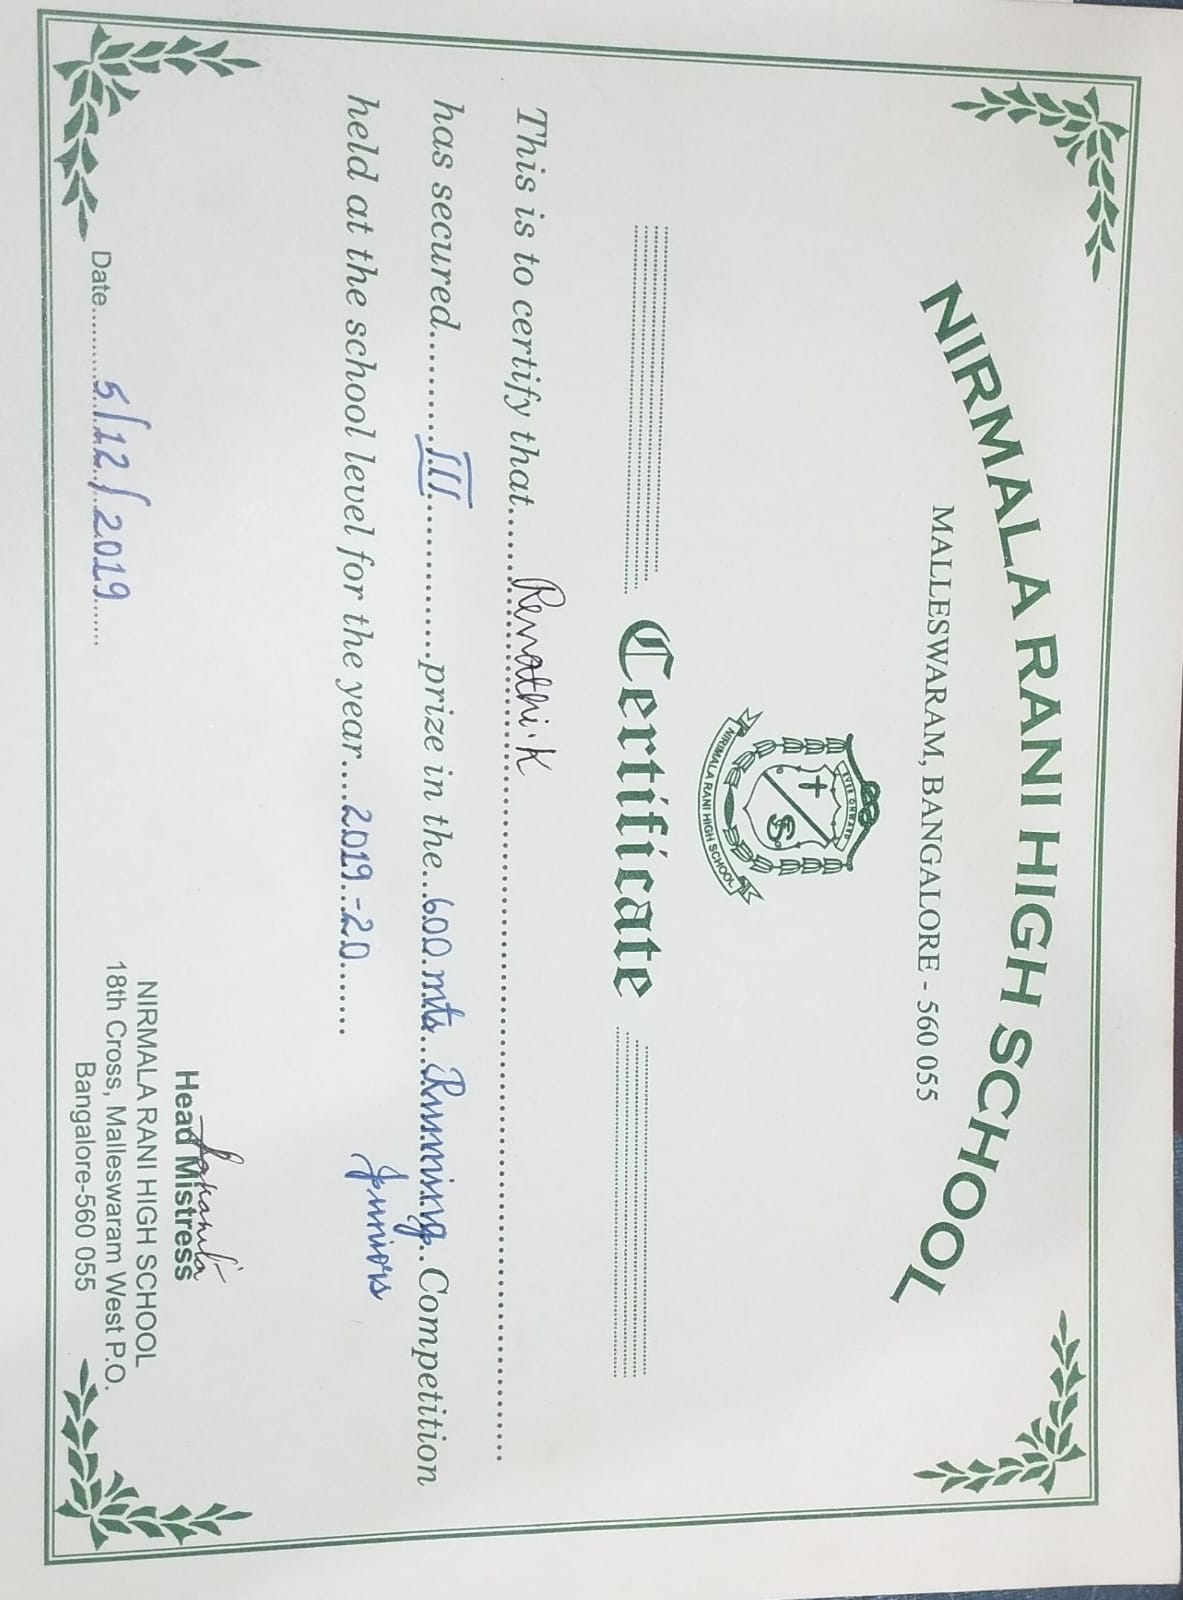 NIRMALA RANI HIGH SCHOOL
MALLESWARAM, BANGALORE - 560 055
EVER ONWARD
NIRMALA RANI HIGH SCHOOL
Certificate
This is to certify that Revathi. K
has secured III prize in the 600 mts Running Competition
Juniors
held at the school level for the year 2019-20
Date 5/12/2019
Head Mistress
NIRMALA RANI HIGH SCHOOL
18th Cross, Malleswaram West P.O.
Bangalore-560 055